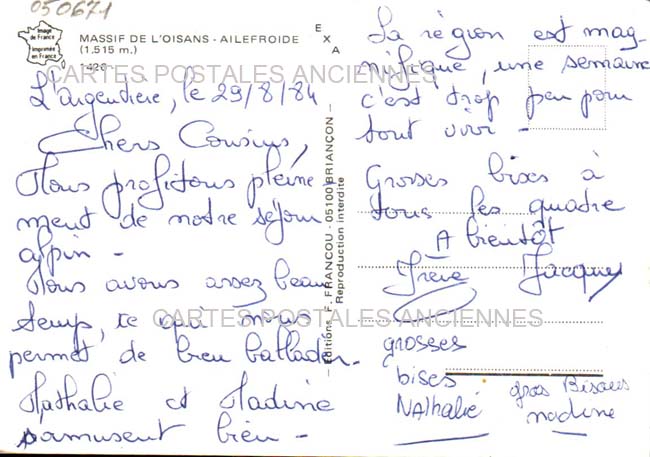 050671
Image
de France
Imprimée
en France
MASSIF DE L'OISANS - AILEFROIDE
(1,515 m.)
1426
EXA
CARTES POSTALES ANCIENNES
L'argentière, le 29/8/84
Chers Cousins,
Nous profitons pleine
ment de notre séjour
alpin -
Nous avons assez beau
temps, ce qui nous
permet de bien ballader.
Nathalie et Nadine
s'amusent bien -
Editions F. FRANCOU - 05100 BRIANÇON -
Reproduction interdite
La région est mag-
nifique, une semaine
c'est trop peu pour
tout voir -
Grosses bises à
tous les quatre
A bientôt
Jacques
CARTES POSTALES ANCIENNES
grosses
bises
NAthalie
gros Bisous
nadine